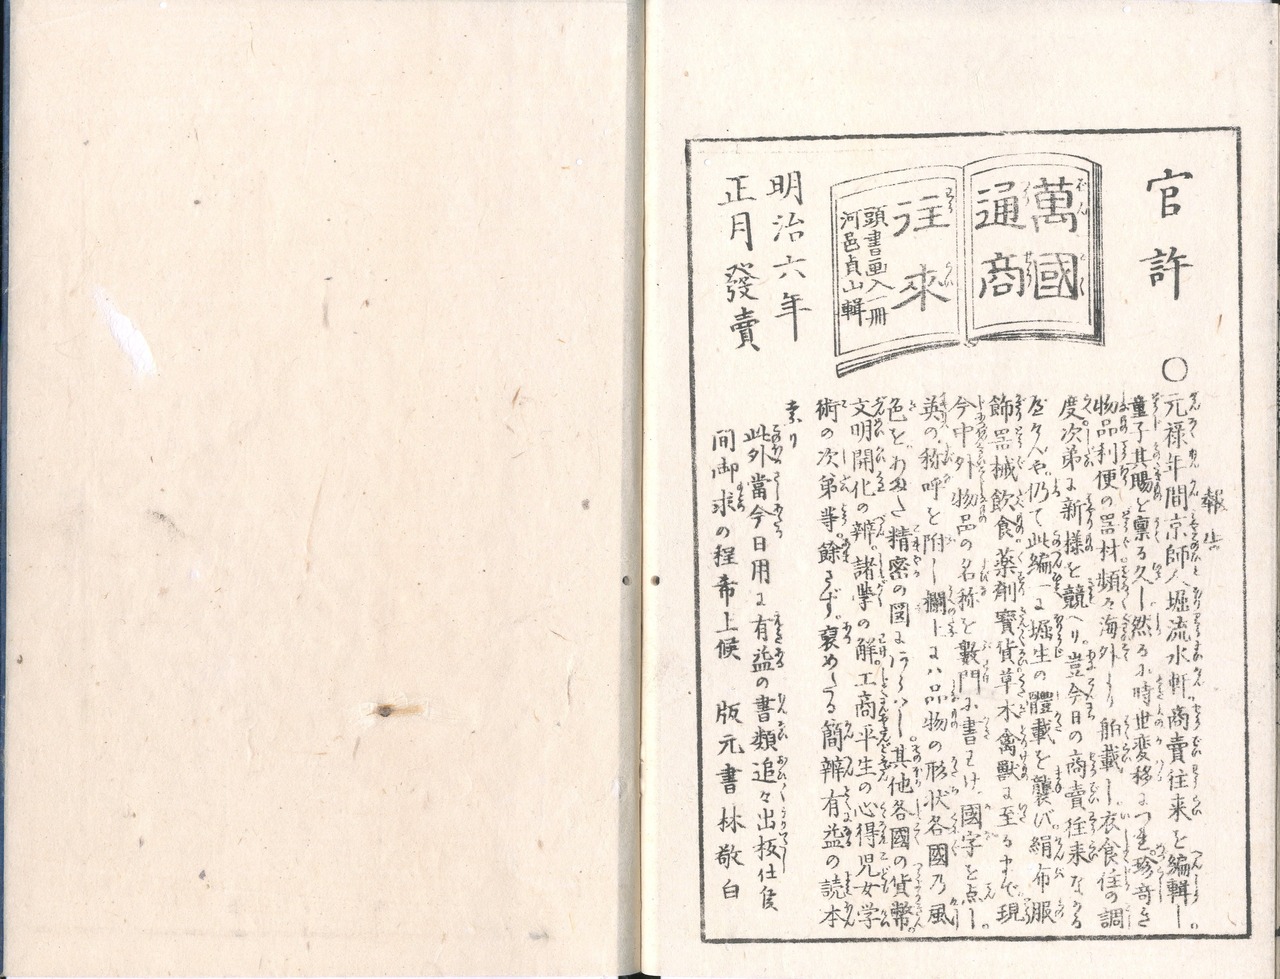 官許
萬國
通商
往來
頭書画入一冊
河邑貞山輯
明治六年
正月發賣
報告
○元禄年間京師人堀流水軒商賣往来を編輯し
童子其賜を禀る久し然るに時世変移につれ珍奇き
物品利便の噐材頻々海外より舶載し衣食住の調
度次第に新様を競へり豈今日の商賣往来なかる
べけんや仍て此編に堀生の體裁を襲び絹布服
飾噐械飲食薬剤寳貨草木禽獣に至るまで現
今中外物品の名称を數門に書わけ國字を点し
英の称呼を附し欄上にハ品物の形状各國乃風
色をあぬた精密の図にあらハし其他各國の貨幣
文明開化の辨諸學の解工商平生の心得児女学
術の次第等餘さず裒めたる簡辨有益の読本
なり
此外當今日用に有益の書類追々出板仕候
間御求の程希上候　版元書林敬白